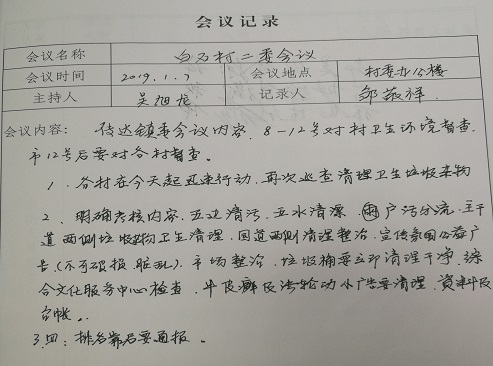 会议记录
会议名称 白石村二委会议
会议时间 2019.1.7 会议地点 村委办公楼
主持人 吴旭龙 记录人 邹敬祥.
会议内容: 传达镇委会议内容. 8-12号对村卫生环境督查.
市12号后要对各村督查。
1. 各村在今天起迅速行动, 再次巡查清理卫生垃圾杂物
2. 明确考核内容, 五边清污, 五水清漂, 雨户污分流, 主干
道两侧垃圾物卫生清理. 国道两侧清理整治. 宣传氛围公益广
告(不可破损、脏乱). 市场整治, 垃圾桶要立即清理干净. 综
合文化服务中心检查. 牛皮癣及法轮功小广告要清理.
台帐。
3. 四: 排名靠后要通报。